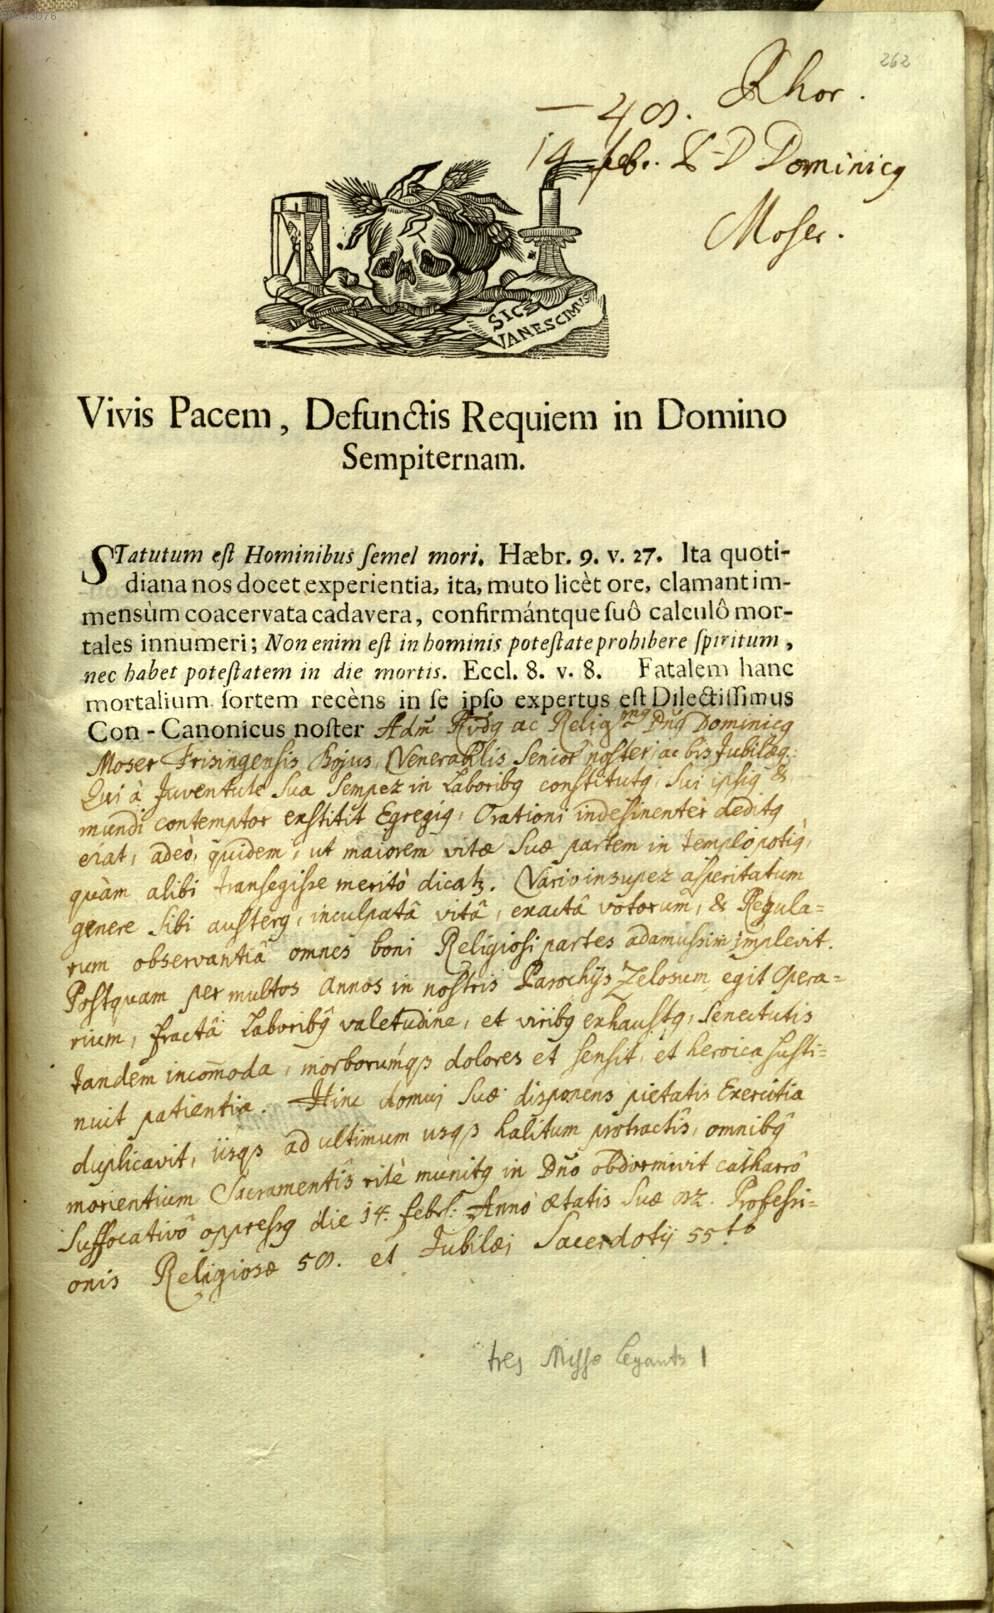 262
Rhor.
— 48.
14 febr. R-D Dominicq
Moser.
SIC
VANESCIMUS
Vivis Pacem, Defunctis Requiem in Domino
Sempiternam.
STatutum eſt Hominibus ſemel mori. Hæbr. 9. v. 27. Ita quoti-
diana nos docet experientia, ita, muto licèt ore, clamant im-
mensùm coacervata cadavera, confirmántque ſuô calculô mor-
tales innumeri; Non enim eſt in hominis poteſtate prohibere ſpiritum,
nec habet poteſtatem in die mortis. Eccl. 8. v. 8. Fatalem hanc
mortalium ſortem recèns in ſe ipſo expertus eſt Dilectiſſimus
Con-Canonicus noſter Adm̃ Rvdq ac Religmq Dnq Dominicq
Moser Frisingensis Bojus, Venerabilis Senior noster ac bis Jubilæq.
Qui à Juventute Sua Semper in Laboribq constitutq, Sui ipsiq &
mundi contemptor exstitit Egregiq, Orationi indesinenter deditq
erat, adeò, quidem, ut maiorem vitæ Suæ partem in templo potiq,
quàm alibi transegisse meritò dicatz. Vario insuper asperitatum
genere sibi austerq, inculpatâ vitâ, exactâ votorum, & Regula=
rum observantiâ omnes boni Religiosi partes adamussim implevit.
Postquam per multos annos in nostris Parochijs Zelosum egit Opera=
rium, fractâ Laboribq valetudine, et viribq exhaustq, Senectutis
tandem incom̃oda, morborumq3 dolores et sensit, et heroica susti=
nuit patientia. Hinc domui Suæ disponens pietatis Exercitia
duplicavit, iisq3 ad ultimum usq3 halitum protractis, omnibq
morientium Sacramentis ritè munitq in Dño obdormivit catharrô
Suffocativô oppressq die 14. febr. Annô ætatis Suæ 82. Professi-
onis Religiosæ 58. et Jubilæi Sacerdotij 55tô
tres Missæ legantz